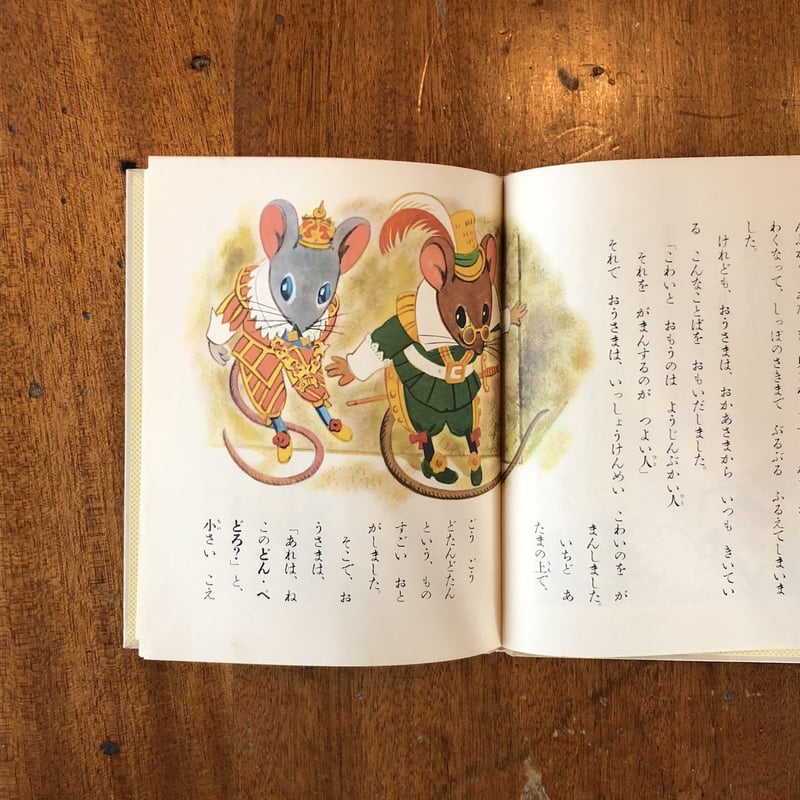 わくなって、しっぽのさきまで ぶるぶる ふるえてしまいま
した。
けれども、おうさまは、おかあさまから いつも きいてい
る こんなことばを おもいだしました。
「こわいと おもうのは ようじんぶかい人
それを がまんするのが つよい人」
それで おうさまは、いっしょうけんめい こわいのを が
まんしました。
いちど あ
たまの上で、
ごう ごう
どたんどたん
という、もの
すごい おと
がしました。
そこで、お
うさまは、
「あれは、ね
このどん・ペ
どろ？」と、
小さい こえ